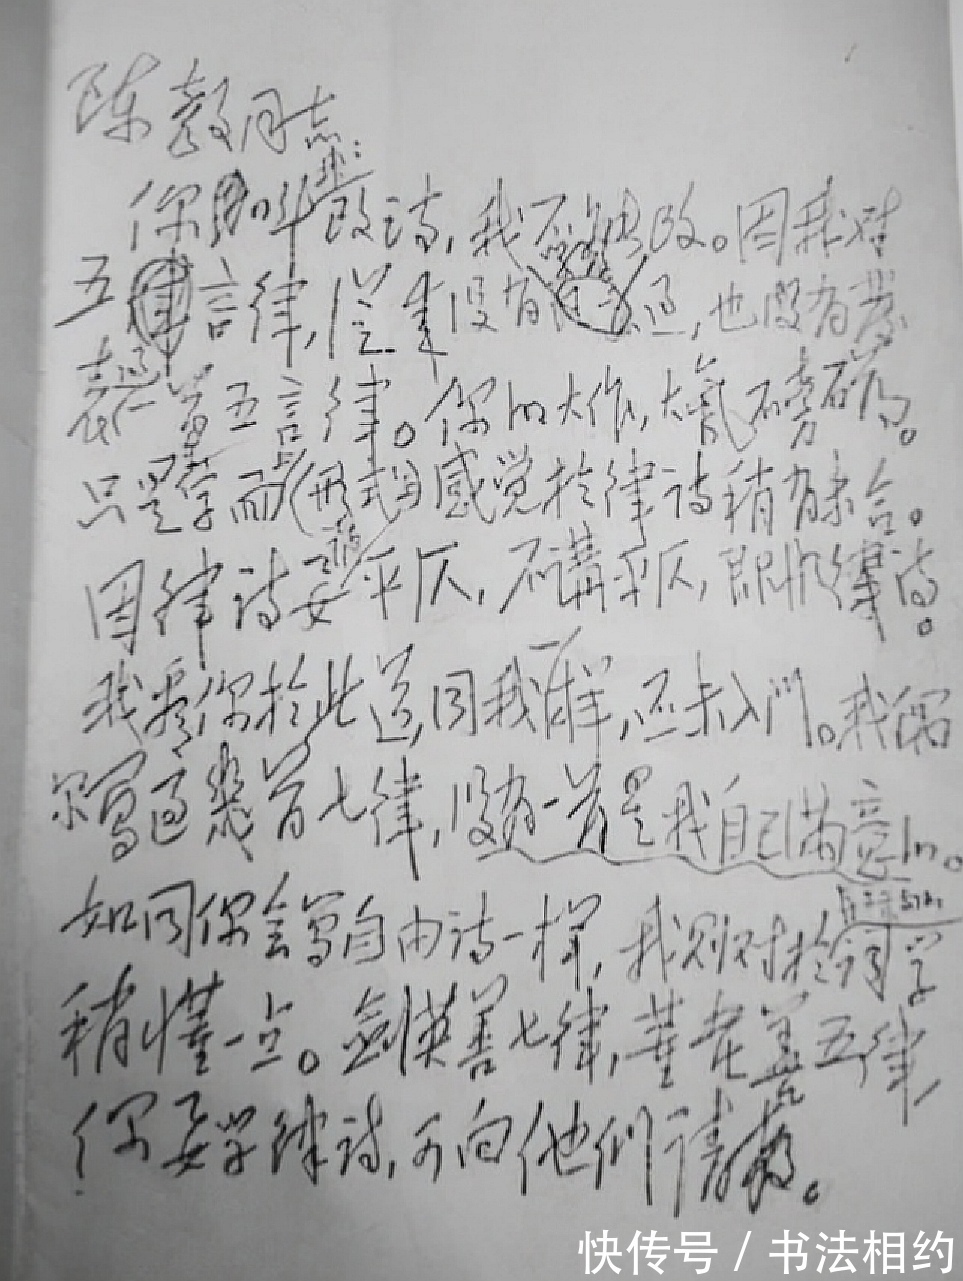 陈毅同志：
你叫我改诗，我不能改。因我对
五言律，从来没有学习过，也没有发
表过一首五言律。你的大作，大气磅礴。
只是在字面上（形式上）感觉于律诗稍有未合。
因律诗要讲平仄，不講平仄，即非律诗。
我看你于此道，同我一样，还未入门。我偶
尔写过几首七律，没有一首是我自己满意的。
如同你会写自由诗一样，我则对于长短句的词学
稍懂一点。剑英善七律，董老善五律，
你要学律诗，可向他们请教。
快传号 / 书法相约